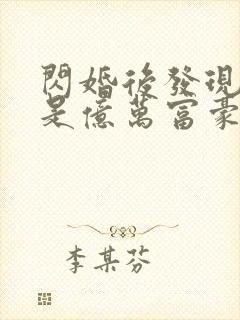 閃婚後發現
是億萬富豪
李某芬